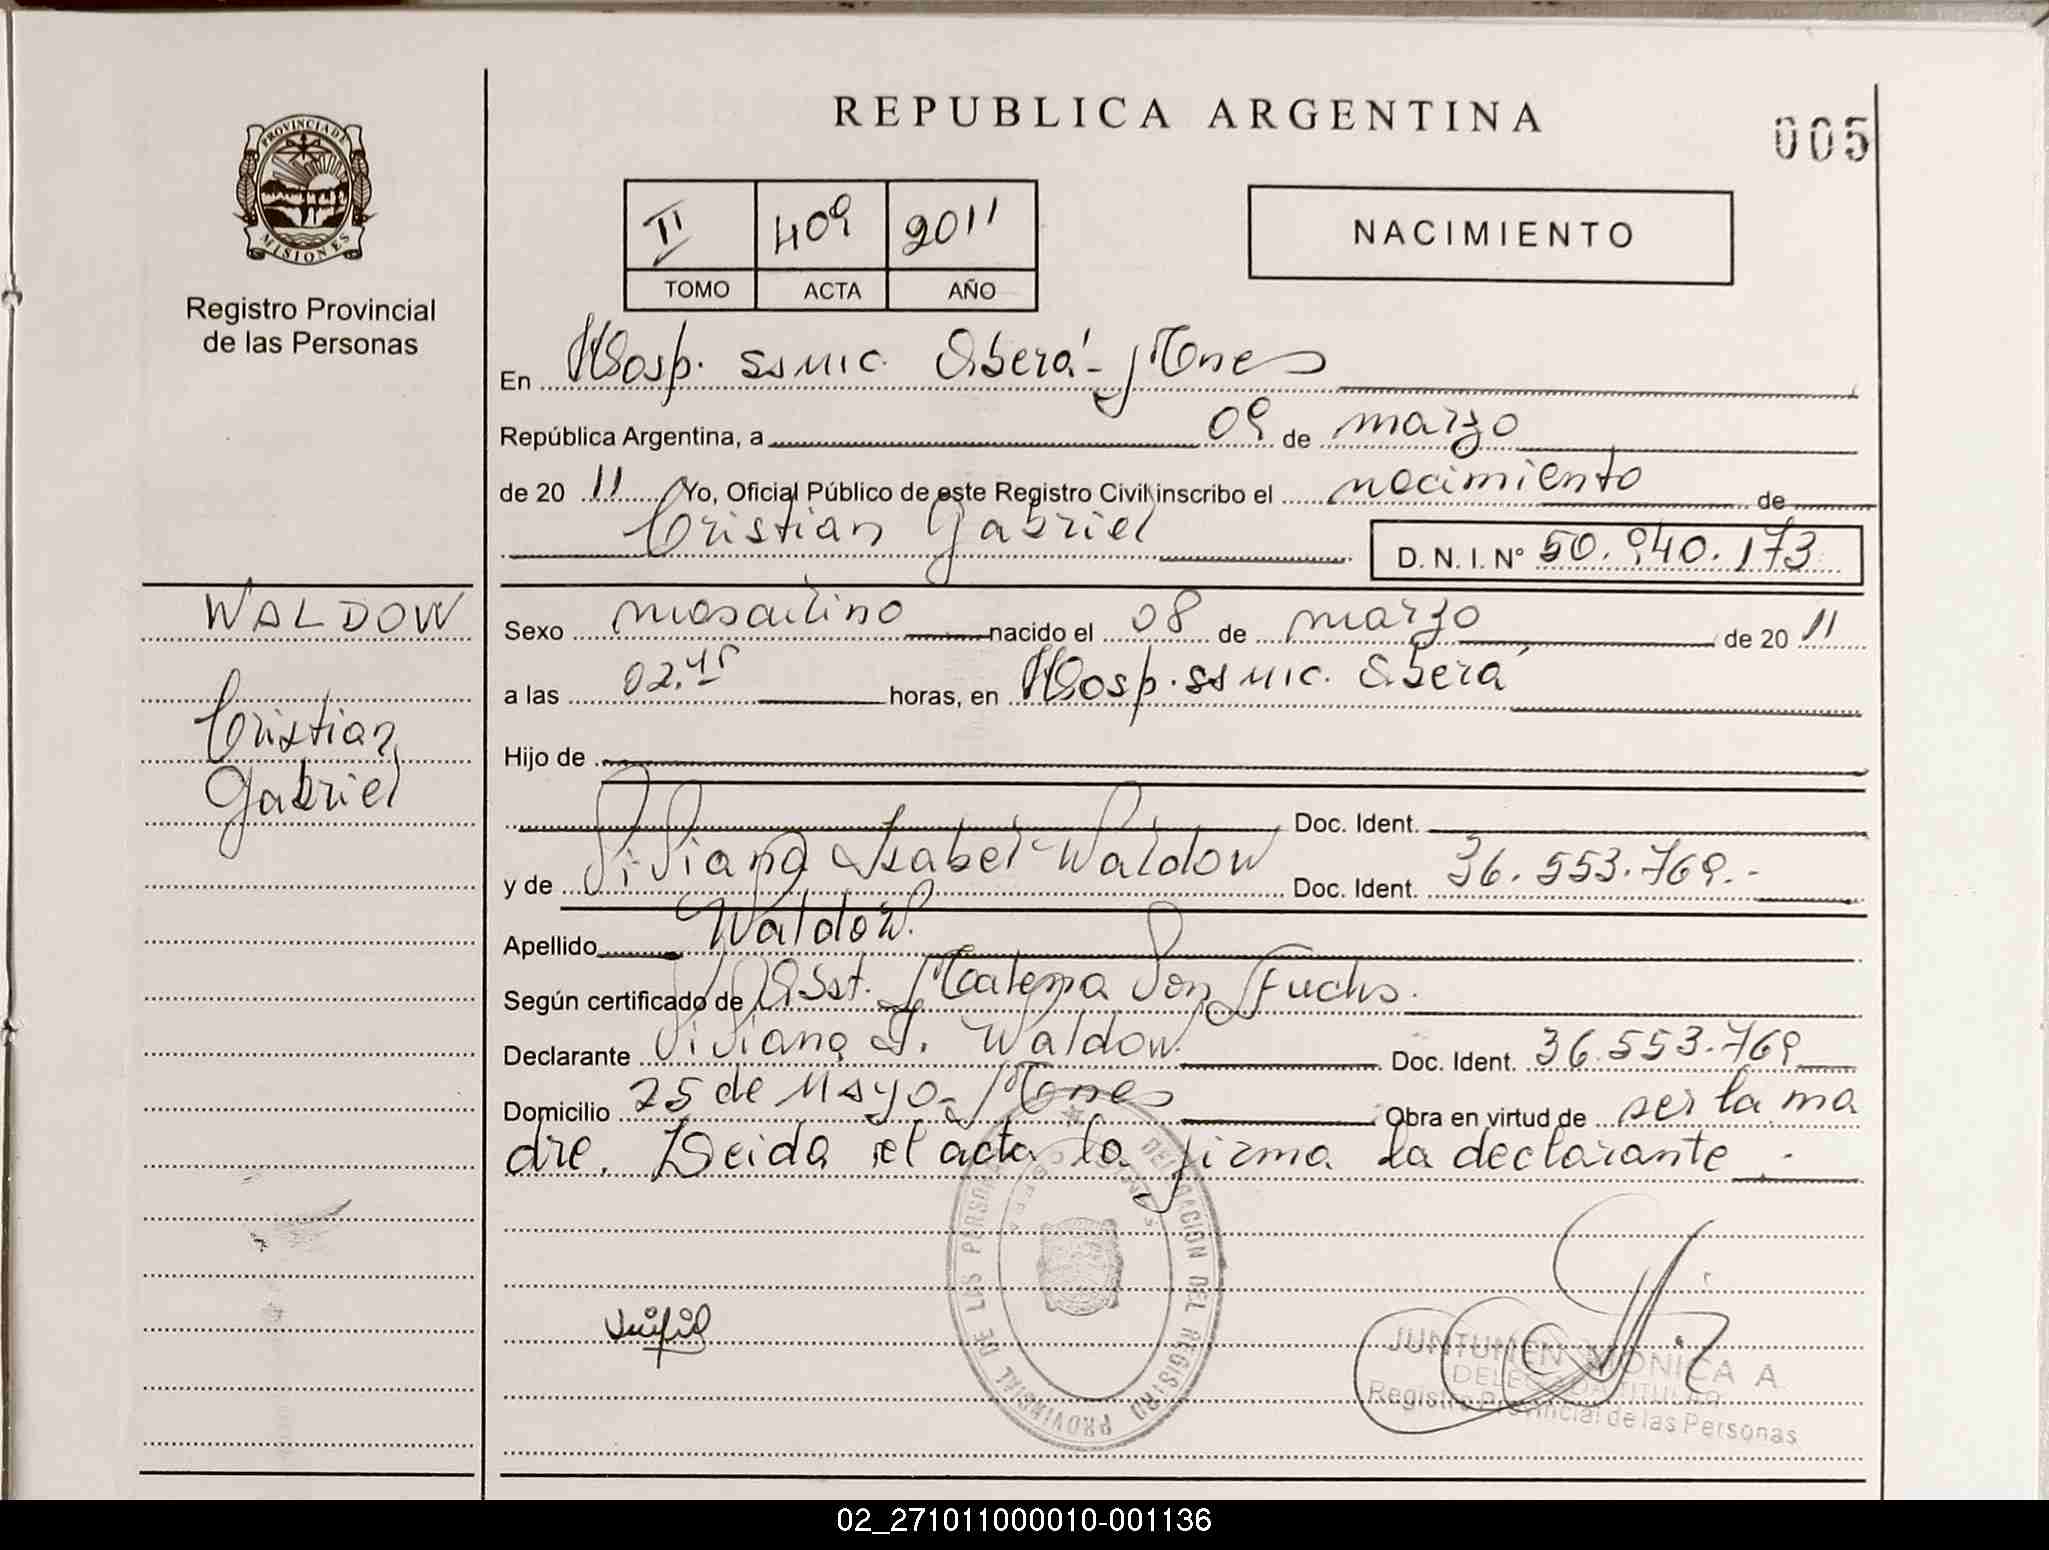 REPUBLICA ARGENTINA
005
PROVINCIA DE
MISIONES
Registro Provincial
de las Personas
II 409 2011
TOMO ACTA AÑO
NACIMIENTO
En Hosp. SSMIC. Oberá - Mnes
República Argentina, a 09 de marzo
de 2011 Yo, Oficial Público de este Registro Civil inscribo el nacimiento de
Cristian Gabriel D.N.I. N° 50.940.173
WALDOW
Cristian
Gabriel
Sexo masculino nacido el 08 de marzo de 2011
a las 02.45 horas, en Hosp. SSMIC. Oberá
Hijo de
Doc. Ident.
y de Viviana Isabel Waldow Doc. Ident. 36.553.769.-
Apellido Waldow.
Según certificado de Obst. Malena Von Fuchs.
Declarante Viviana I. Waldow. Doc. Ident. 36.553.769
Domicilio 25 de Mayo - Mnes Obra en virtud de ser la ma
dre. Leida el acta la firma la declarante.-
DELEGACION DEL REGISTRO PROVINCIAL DE LAS PERSONAS
JUNTUNEN MONICA A
DELEGADA TITULAR
Registro Provincial de las Personas
02_271011000010-001136